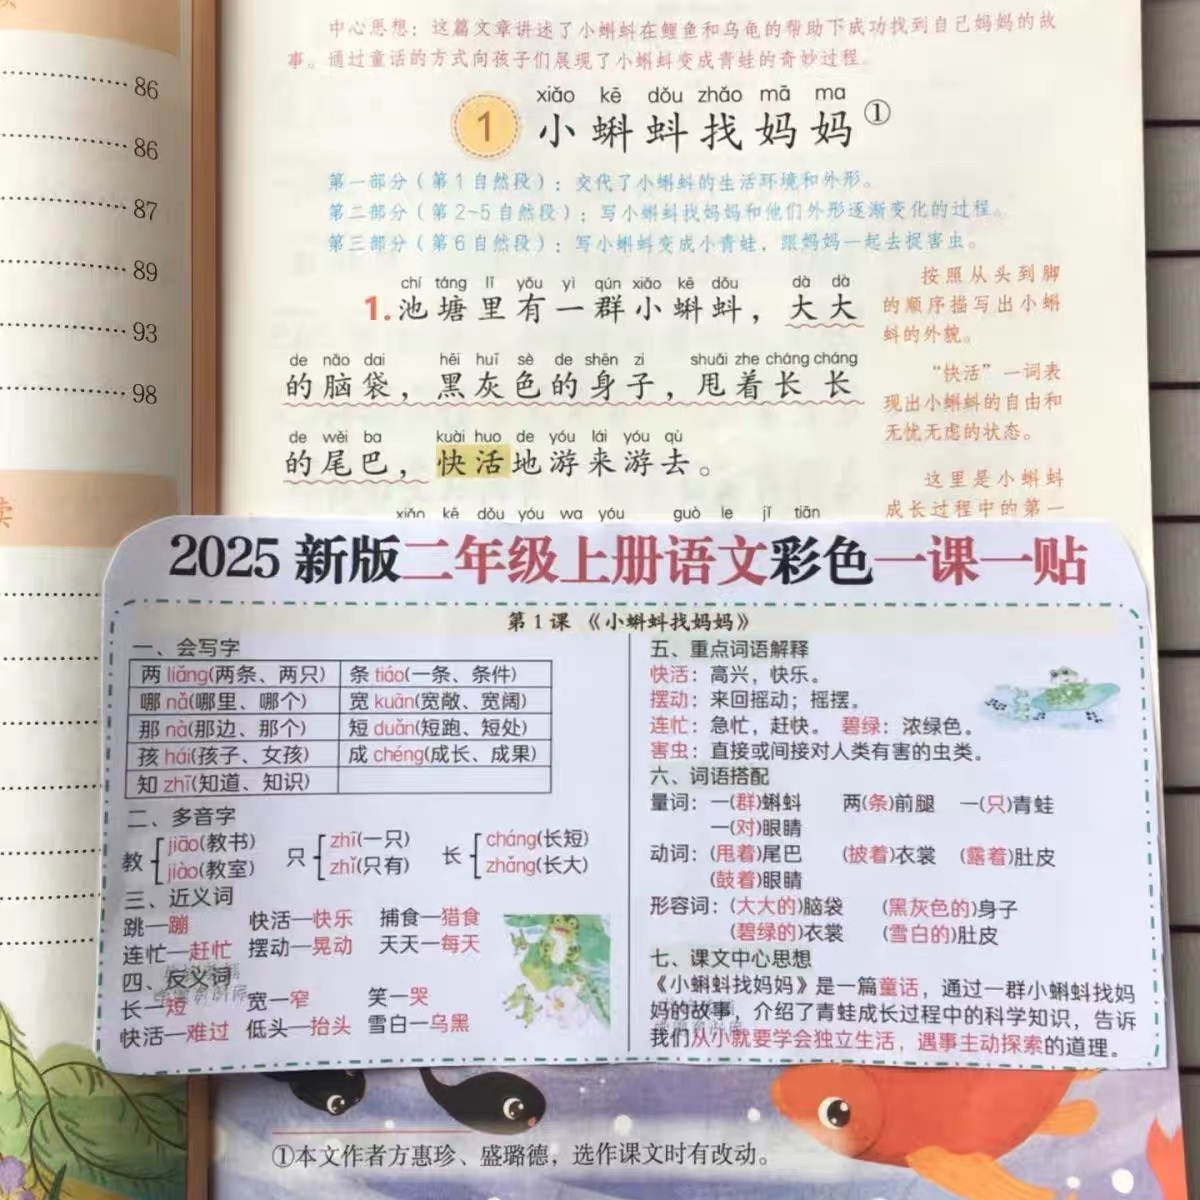 中心思想：这篇文章讲述了小蝌蚪在鲤鱼和乌龟的帮助下成功找到自己妈妈的故
事。通过童话的方式向孩子们展现了小蝌蚪变成青蛙的奇妙过程。
xiǎo kē dǒu zhǎo mā ma
1 小蝌蚪找妈妈①
第一部分（第1自然段）：交代了小蝌蚪的生活环境和外形。
第二部分（第2~5自然段）：写小蝌蚪找妈妈和他们外形逐渐变化的过程。
第三部分（第6自然段）：写小蝌蚪变成小青蛙，跟妈妈一起去捉害虫。
chí táng lǐ yǒu yì qún xiǎo kē dǒu dà dà
1.池塘里有一群小蝌蚪，大大
de nǎo dai hēi huī sè de shēn zi shuǎi zhe cháng cháng
的脑袋，黑灰色的身子，甩着长长
de wěi ba kuài huo de yóu lái yóu qù
的尾巴，快活地游来游去。
xiǎn kē dǒu yóu wa yóu guò le jǐ tiān
按照从头到脚
的顺序描写出小蝌
蚪的外貌。
“快活”一词表
现出小蝌蚪的自由和
无忧无虑的状态。
这里是小蝌蚪
成长过程中的第一
86
86
87
89
93
98
读
2025新版二年级上册语文彩色一课一贴
第1课《小蝌蚪找妈妈》
一、会写字
两 liǎng(两条、两只) 条 tiáo(一条、条件)
哪 nǎ(哪里、哪个) 宽 kuān(宽敞、宽阔)
那 nà(那边、那个) 短 duǎn(短跑、短处)
孩 hái(孩子、女孩) 成 chéng(成长、成果)
知 zhī(知道、知识)
二、多音字
教 jiāo(教书) jiào(教室) 只 zhī(一只) zhǐ(只有) 长 cháng(长短) zhǎng(长大)
三、近义词
跳—蹦 快活—快乐 捕食—猎食
连忙—赶忙 摆动—晃动 天天—每天
四、反义词
长—短 宽—窄 笑—哭
快活—难过 低头—抬头 雪白—乌黑
五、重点词语解释
快活：高兴，快乐。
摆动：来回摇动；摇摆。
连忙：急忙，赶快。 碧绿：浓绿色。
害虫：直接或间接对人类有害的虫类。
六、词语搭配
量词：一(群)蝌蚪 两(条)前腿 一(只)青蛙
一(对)眼睛
动词：(甩着)尾巴 (披着)衣裳 (露着)肚皮
(鼓着)眼睛
形容词：(大大的)脑袋 (黑灰色的)身子
(碧绿的)衣裳 (雪白的)肚皮
七、课文中心思想
《小蝌蚪找妈妈》是一篇童话，通过一群小蝌蚪找妈
妈的故事，介绍了青蛙成长过程中的科学知识，告诉
我们从小就要学会独立生活，遇事主动探索的道理。
①本文作者方惠珍、盛璐德，选作课文时有改动。